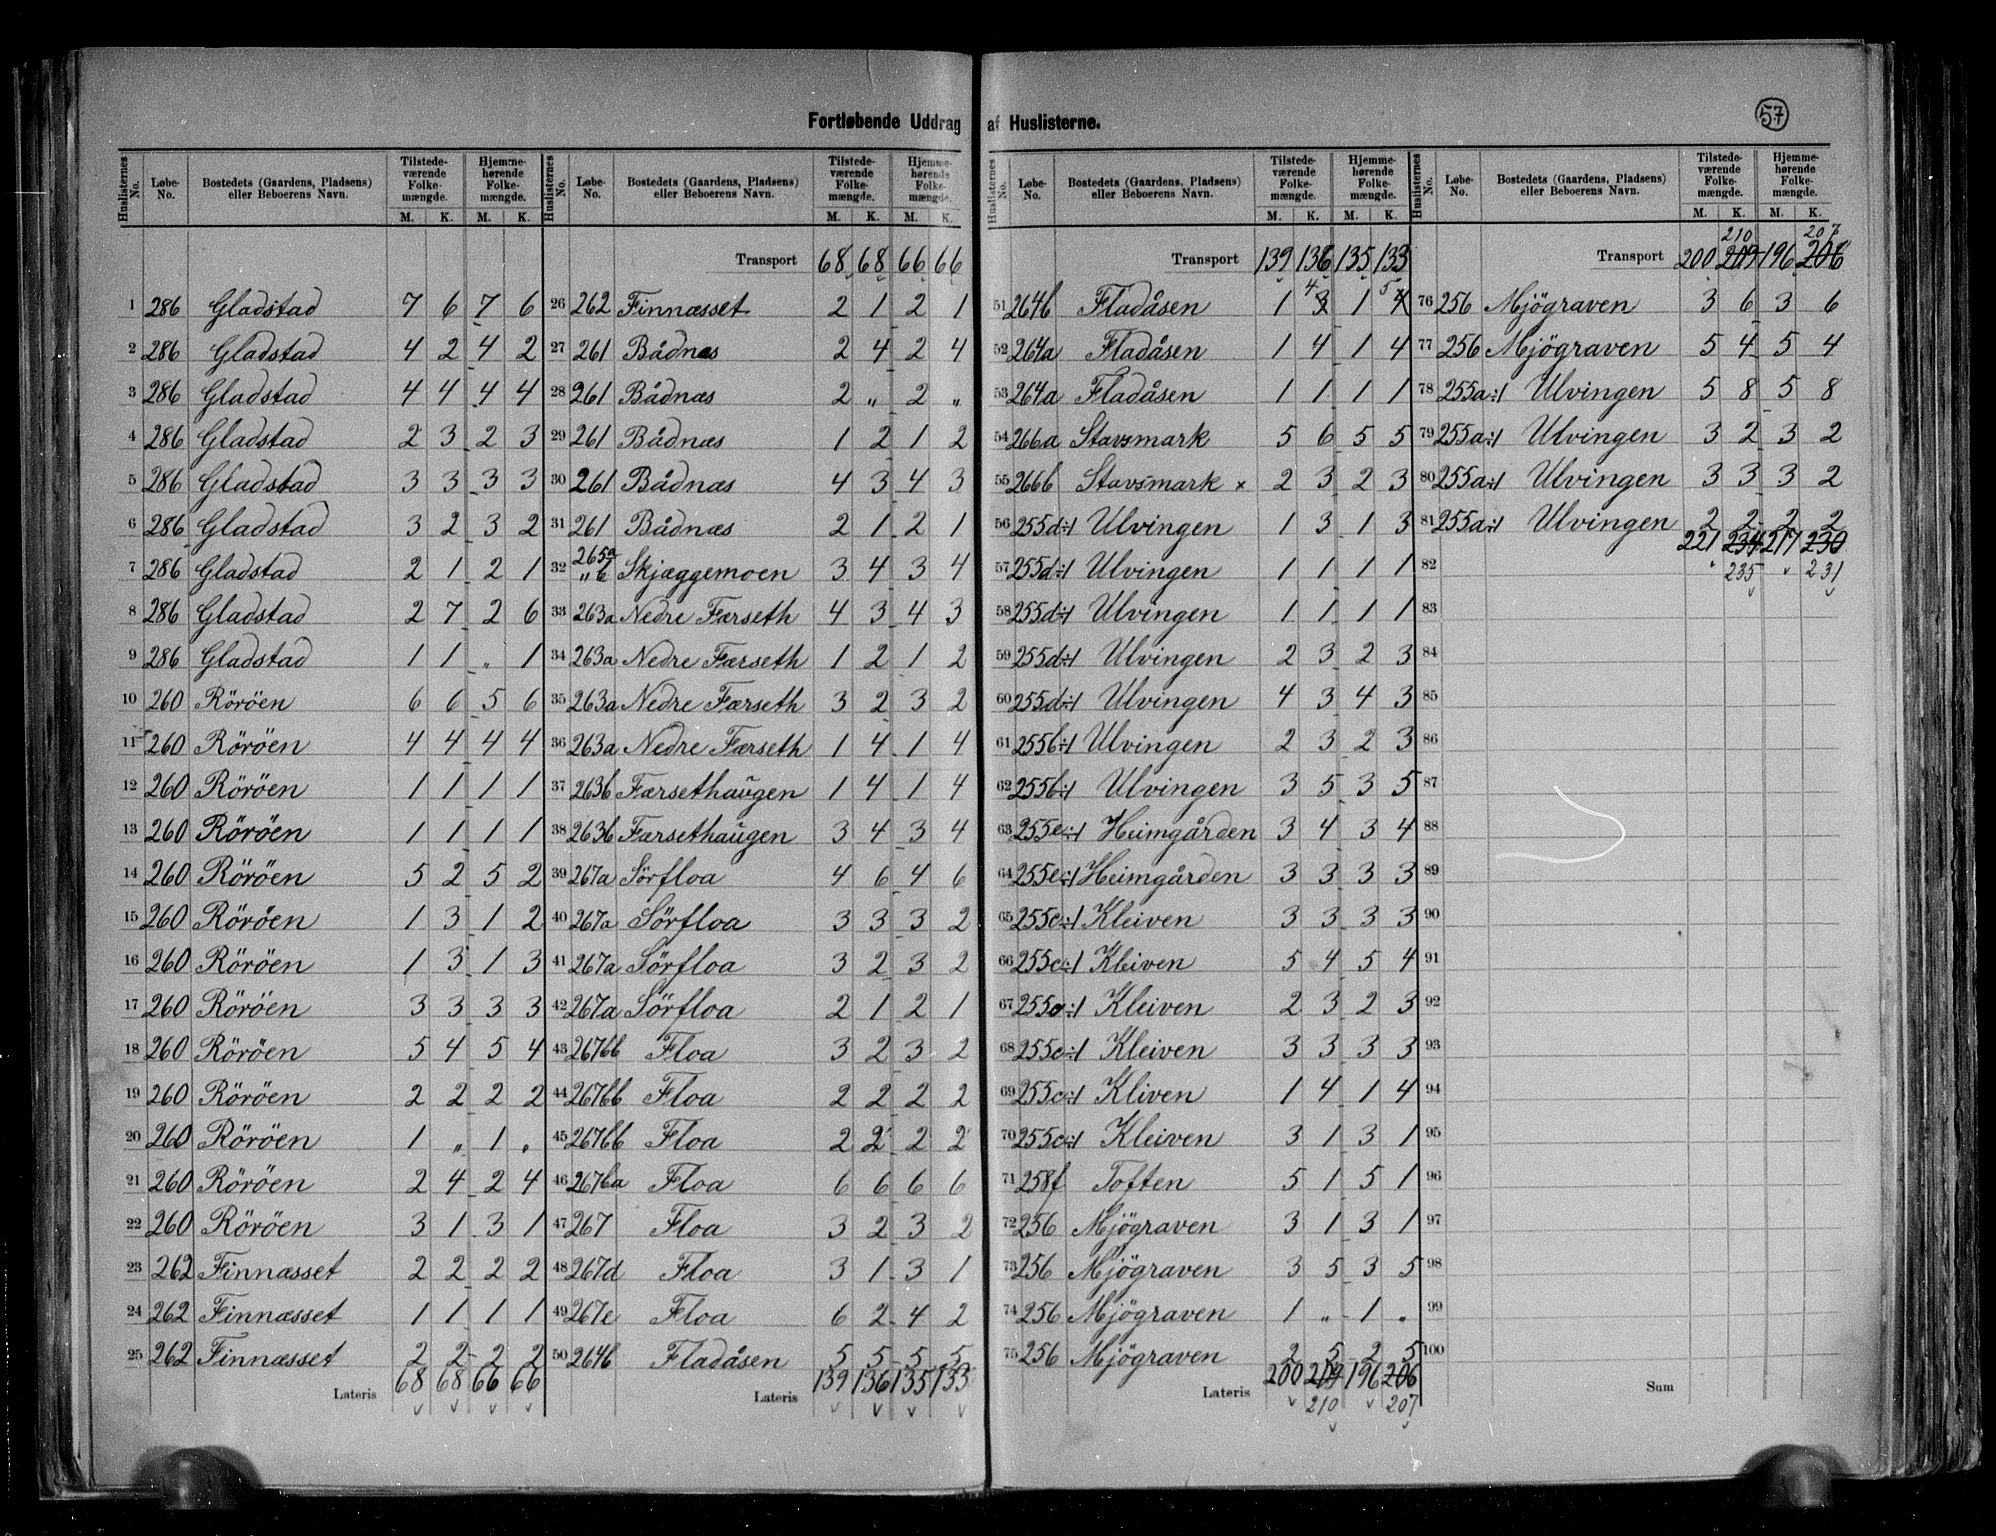 Fortløbende Uddrag af Huslisterne.
57
Huslisternes No. | Løbe-No. | Bostedets (Gaardens, Pladsens) eller Beboerens Navn. | Tilstedeværende Folkemængde. M. K. | Hjemmehørende Folkemængde. M. K.
1 286 Gladstad 7 6 7 6
2 286 Gladstad 4 2 4 2
3 286 Gladstad 4 4 4 4
4 286 Gladstad 2 3 2 3
5 286 Gladstad 3 3 3 3
6 286 Gladstad 3 2 3 2
7 286 Gladstad 2 1 2 1
8 286 Gladstad 2 7 2 6
9 286 Gladstad 1 1 „ 1
10 260 Röröen 6 6 5 6
11 260 Röröen 4 4 4 4
12 260 Röröen 1 1 1 1
13 260 Röröen 1 1 1 1
14 260 Röröen 5 2 5 2
15 260 Röröen 1 3 1 2
16 260 Röröen 1 3 1 3
17 260 Röröen 3 3 3 3
18 260 Röröen 5 4 5 4
19 260 Röröen 2 2 2 2
20 260 Röröen 1 „ 1 „
21 260 Röröen 2 4 2 4
22 260 Röröen 3 1 3 1
23 262 Finnæsset 2 2 2 2
24 262 Finnæsset 1 1 1 1
25 262 Finnæsset 2 2 2 2
Lateris 68 68 66 66
Huslisternes No. | Løbe-No. | Bostedets (Gaardens, Pladsens) eller Beboerens Navn. | Tilstedeværende Folkemængde. M. K. | Hjemmehørende Folkemængde. M. K.
Transport 68 68 66 66
26 262 Finnæsset 2 1 2 1
27 261 Bådnæs 2 4 2 4
28 261 Bådnæs 2 „ 2 „
29 261 Bådnæs 1 2 1 2
30 261 Bådnæs 4 3 4 3
31 261 Bådnæs 2 1 2 1
32 265a „ b Skjæggemoen 3 4 3 4
33 263a Nedre Færseth 4 3 4 3
34 263a Nedre Færseth 1 2 1 2
35 263a Nedre Færseth 3 2 3 2
36 263a Nedre Færseth 1 4 1 4
37 263b Færsethaugen 1 4 1 4
38 263b Færsethaugen 3 4 3 4
39 267a Sörfloa 4 6 4 6
40 267a Sörfloa 3 3 3 2
41 267a Sörfloa 3 2 3 2
42 267a Sörfloa 2 1 2 1
43 267bb Floa 3 2 3 2
44 267bb Floa 2 2 2 2
45 267bb Floa 2 2 2 2
46 267ba Floa 6 6 6 6
47 267 Floa 3 2 3 2
48 267d Floa 3 1 3 1
49 267e Floa 6 2 4 2
50 264b Fladåsen 5 5 5 5
Lateris 139 136 135 133
Huslisternes No. | Løbe-No. | Bostedets (Gaardens, Pladsens) eller Beboerens Navn. | Tilstedeværende Folkemængde. M. K. | Hjemmehørende Folkemængde. M. K.
Transport 139 136 135 133
51 264b Fladåsen 1 3 4 1 4 5
52 264a Fladåsen 1 4 1 4
53 264a Fladåsen 1 1 1 1
54 266a Stavsmark 5 6 5 5
55 266b Stavsmark × 2 3 2 3
56 255d÷1 Ulvingen 1 3 1 3
57 255d÷1 Ulvingen 1 1 1 1
58 255d÷1 Ulvingen 1 1 1 1
59 255d÷1 Ulvingen 2 3 2 3
60 255d÷1 Ulvingen 4 3 4 3
61 255b÷1 Ulvingen 2 3 2 3
62 255b÷1 Ulvingen 3 5 3 5
63 255e÷1 Heimgården 3 4 3 4
64 255e÷1 Heimgården 3 3 3 3
65 255c÷1 Kleiven 3 3 3 3
66 255c÷1 Kleiven 5 4 5 4
67 255c÷1 Kleiven 2 3 2 3
68 255c÷1 Kleiven 3 3 3 3
69 255c÷1 Kliven 1 4 1 4
70 255c÷1 Kleiven 3 1 3 1
71 258f Toften 5 1 5 1
72 256 Mjögraven 3 1 3 1
73 256 Mjögraven 3 5 3 5
74 256 Mjögraven 1 „ 1 „
75 256 Mjögraven 2 5 2 5
Lateris 200 209 196 206
210 207
Huslisternes No. | Løbe-No. | Bostedets (Gaardens, Pladsens) eller Beboerens Navn. | Tilstedeværende Folkemængde. M. K. | Hjemmehørende Folkemængde. M. K.
210 207
Transport 200 209 196 206
76 256 Mjögraven 3 6 3 6
77 256 Mjögraven 5 4 5 4
78 255a÷1 Ulvingen 5 8 5 8
79 255a÷1 Ulvingen 3 2 3 2
80 255a÷1 Ulvingen 3 3 3 2
81 255a÷1 Ulvingen 2 2 2 2
221 234 217 230
82 235 231
83
84
85
86
87
88
89
90
91
92
93
94
95
96
97
98
99
100
Sum